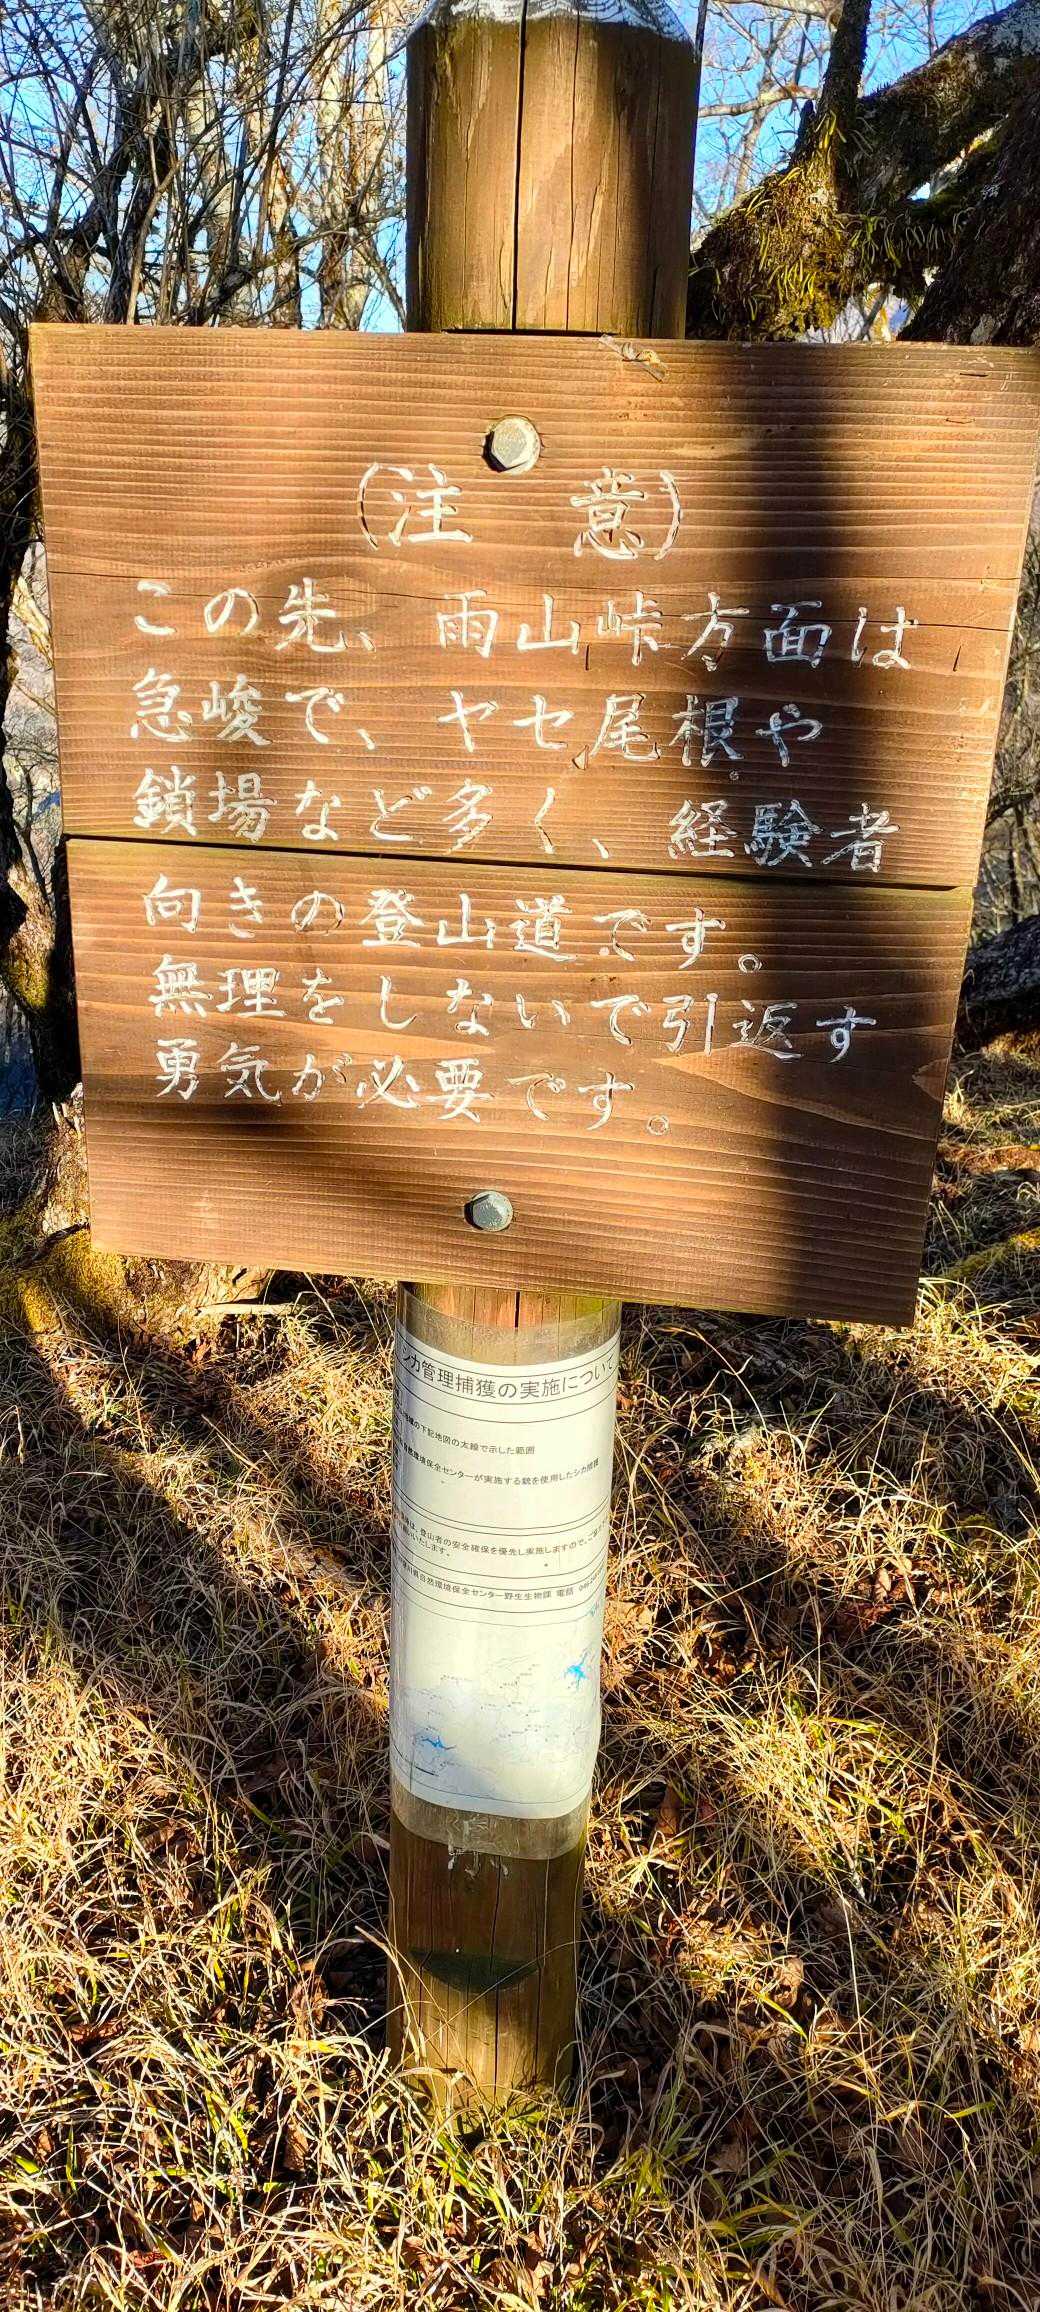 (注 意)
この先、雨山峠方面は
急峻で、ヤセ尾根や
鎖場など多く、経験者
向きの登山道です。
無理をしないで引返す
勇気が必要です。
シカ管理捕獲の実施について
の下記地図の太線で示した範囲
自然環境保全センターが実施する銃を使用したシカ捕獲
は、登山者の安全確保を優先し実施しますので、ご
いたします。
自然環境保全センター野生生物課 電話